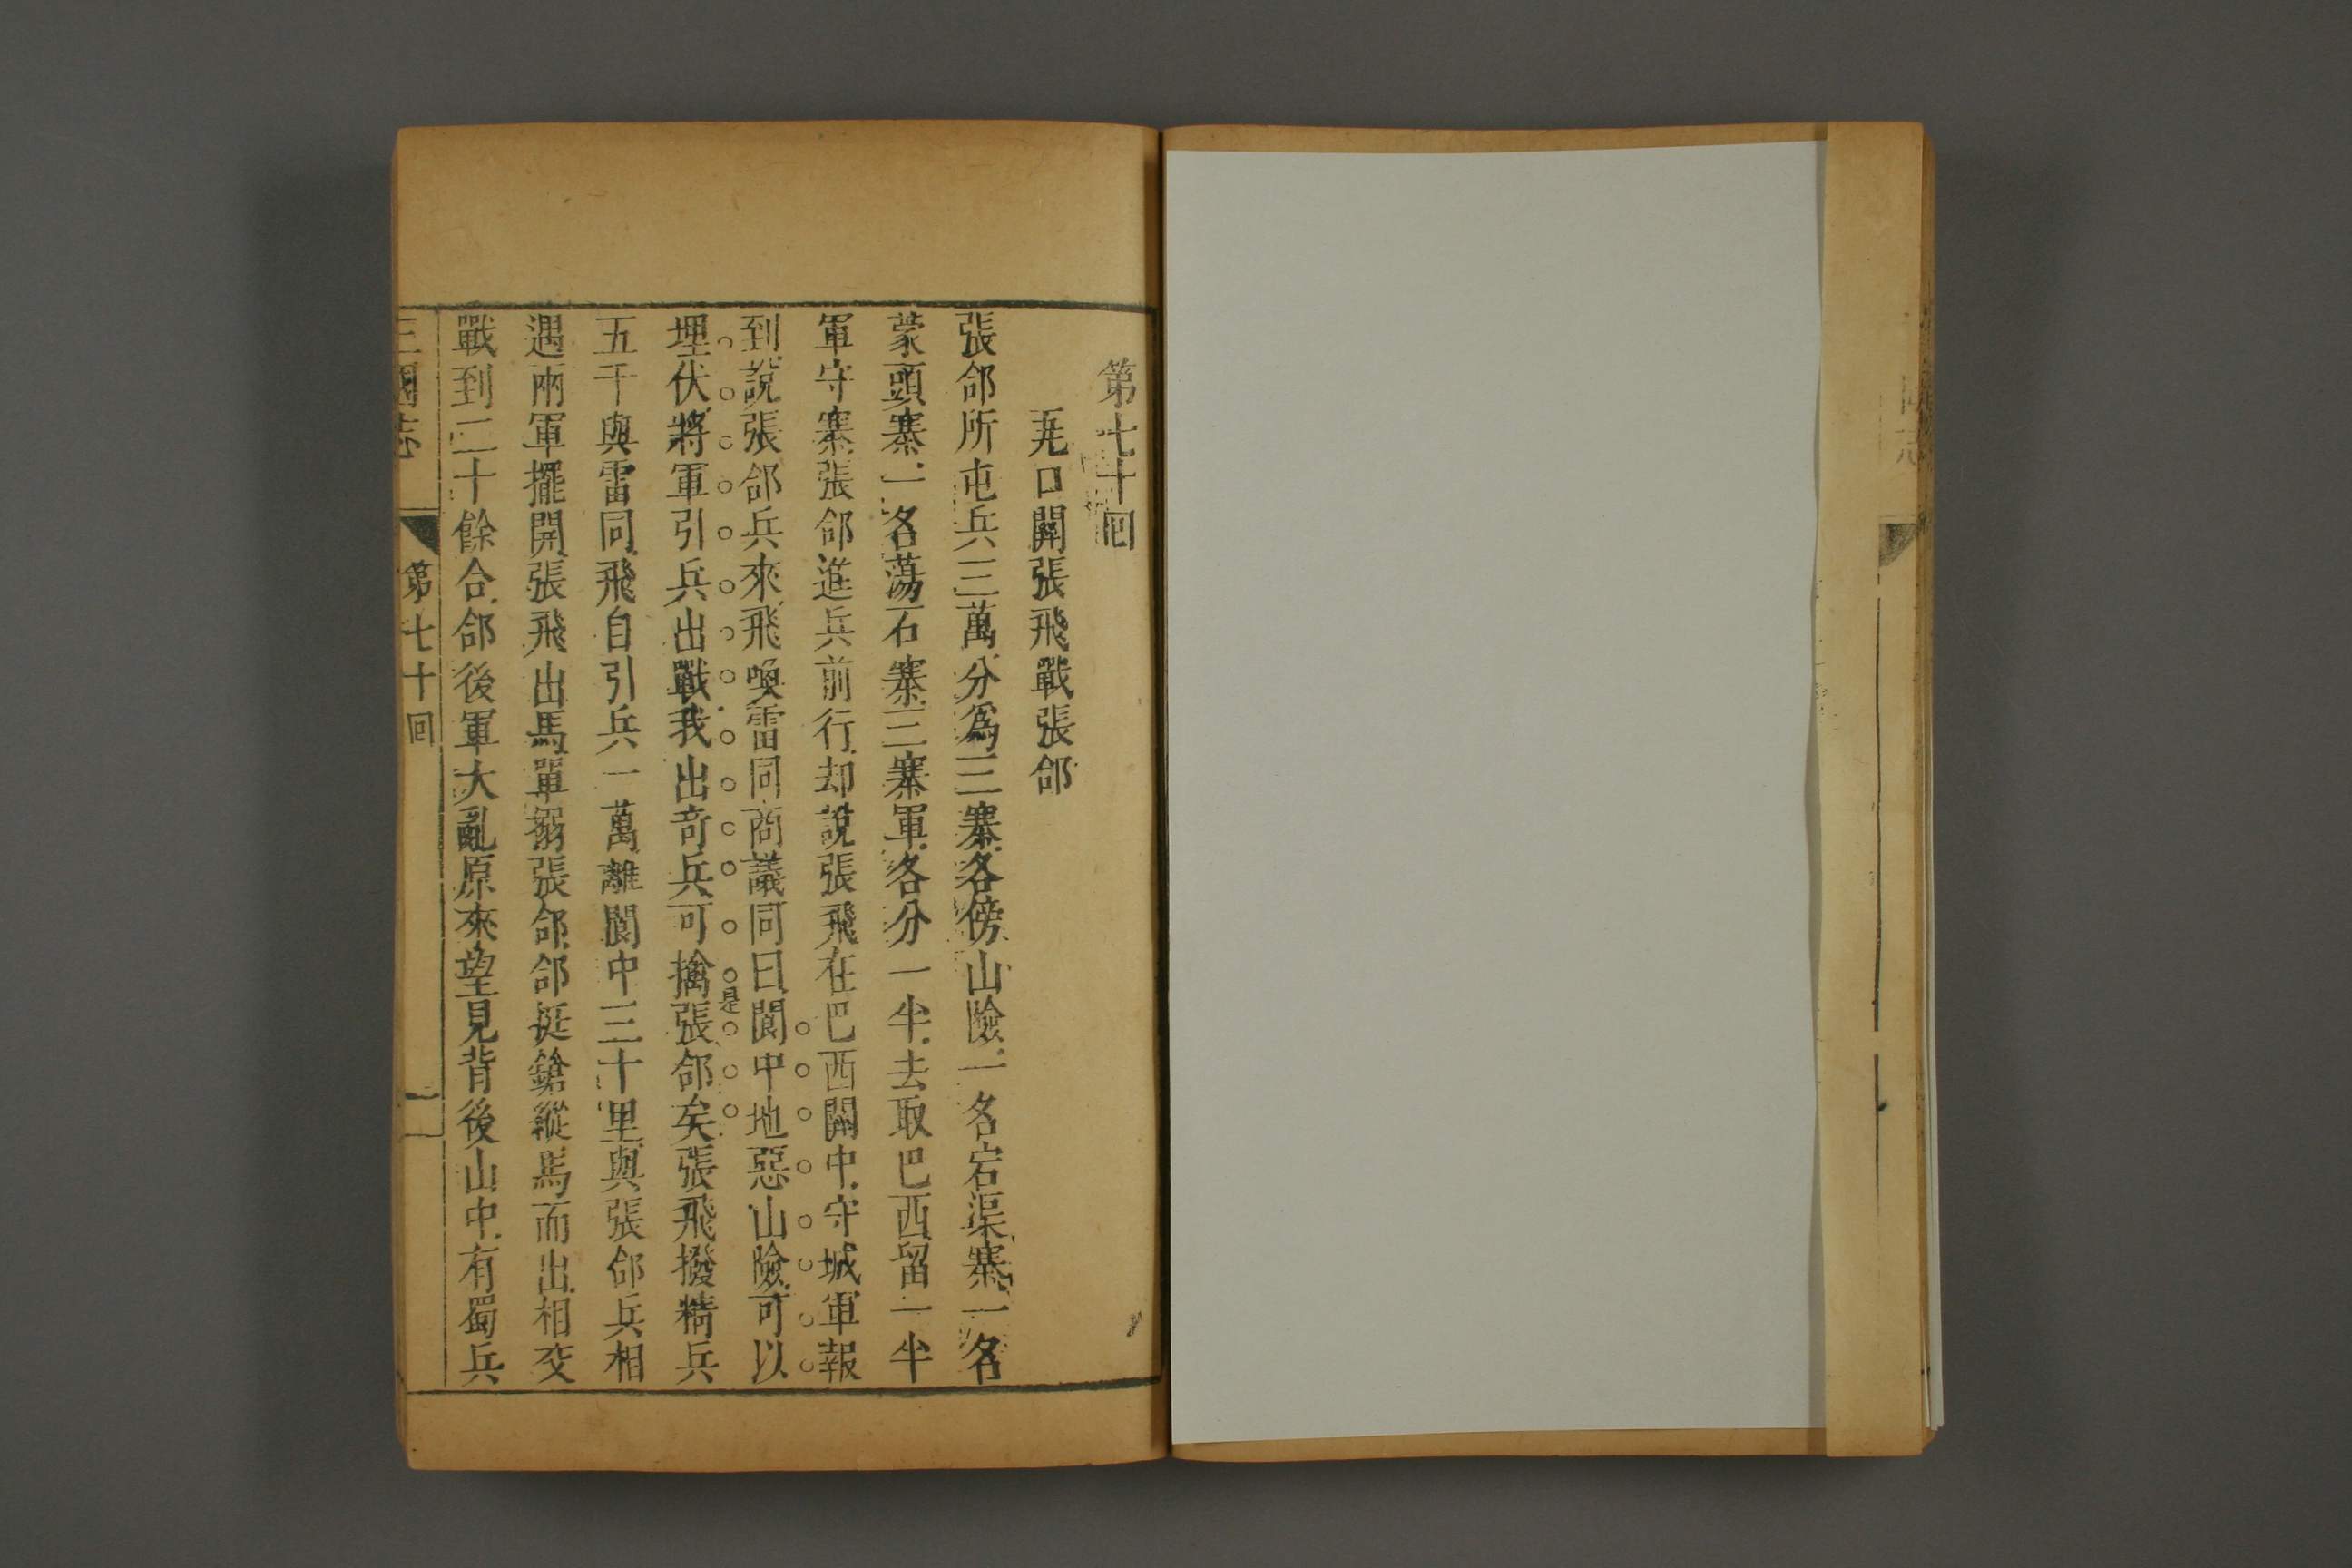 第七十回
瓦口關張飛戰張郃
張郃所屯兵三萬分為三寨各傍山險一名宕渠寨一名
蒙頭寨一名蕩石寨三寨軍各分一半去取巴西留一半
軍守寨張郃進兵前行却說張飛在巴西閬中守城軍報
到說張郃兵來飛喚雷同商議同曰閬中地惡山險可以
埋伏將軍引兵出戰我出奇兵可擒張郃矣張飛撥精兵
是
五千與雷同飛自引兵一萬離閬中三十里與張郃兵相
遇兩軍擺開張飛出馬單搦張郃郃挺鎗縱馬而出相交
戰到二十餘合郃後軍大亂原來望見背後山中有蜀兵
三國志 第七十回 一